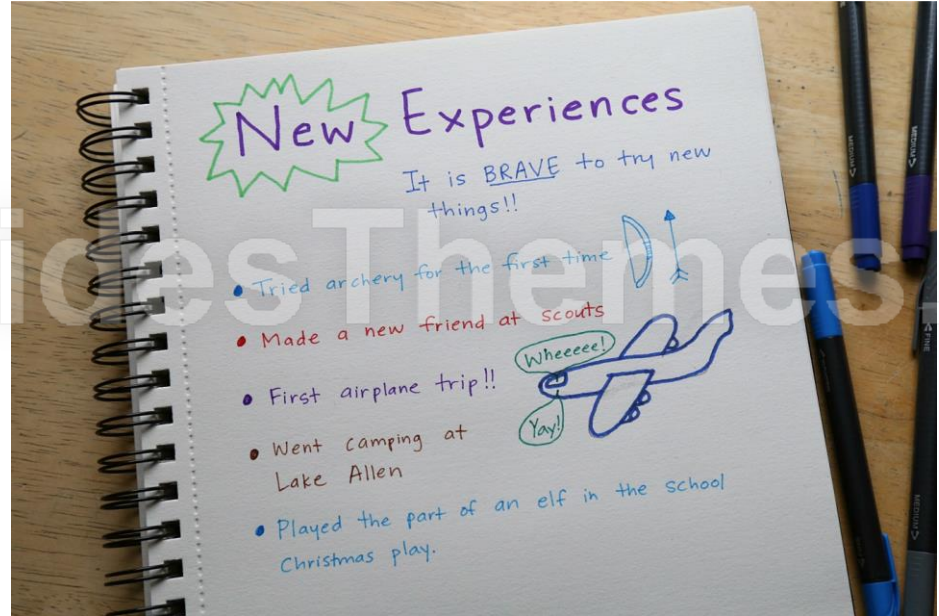 New Experiences
It is BRAVE to try new
things!!
• Tried archery for the first time
• Made a new friend at scouts
Wheeeee!
• First airplane trip!!
Yay!
• Went camping at
Lake Allen
• Played the part of an elf in the school
Christmas play.
MEDIUM
MEDIUM
FINE
MEDIUM
idesThemes.